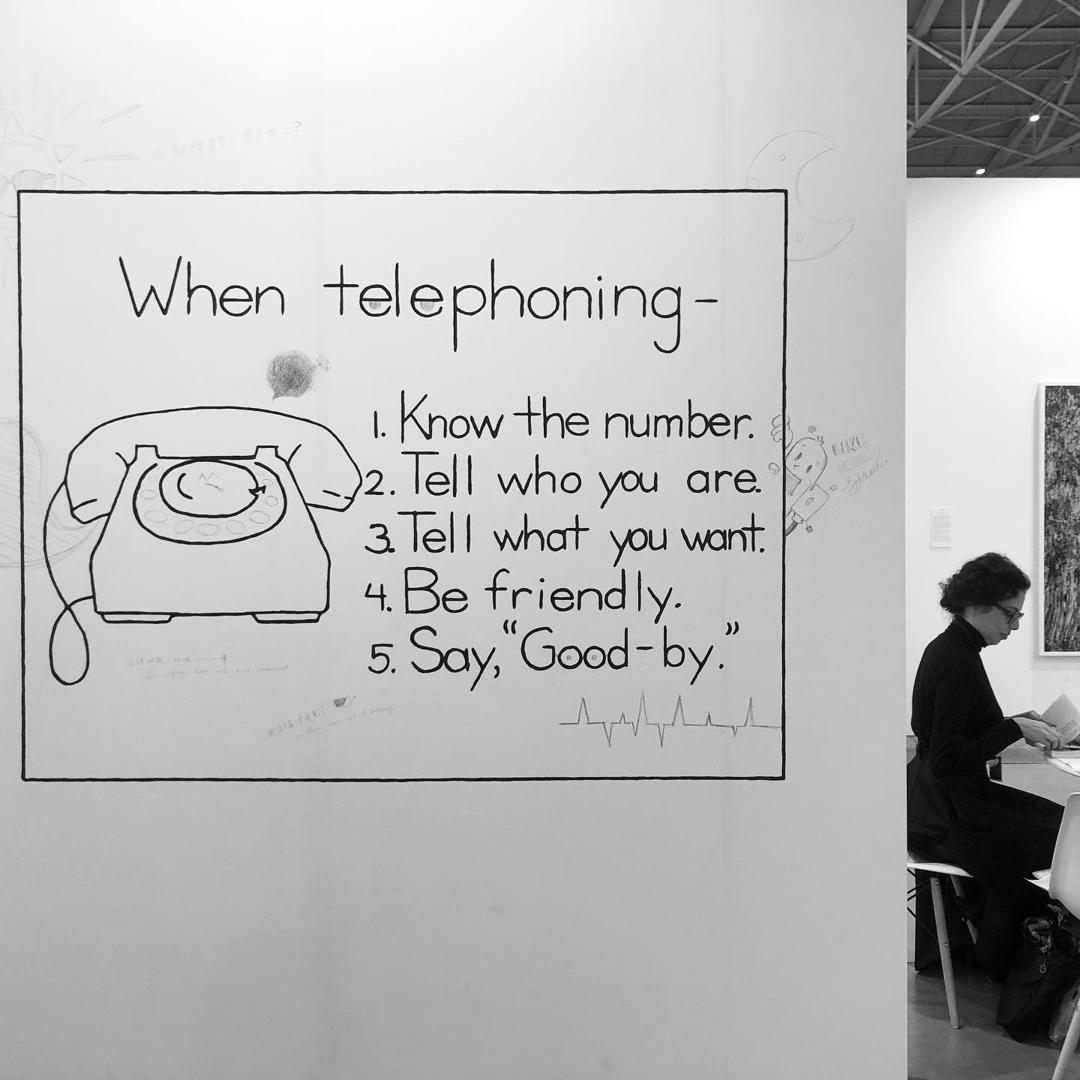 When telephoning-
1. Know the number.
2. Tell who you are.
3. Tell what you want.
4. Be friendly.
5. Say, “Good-by.”